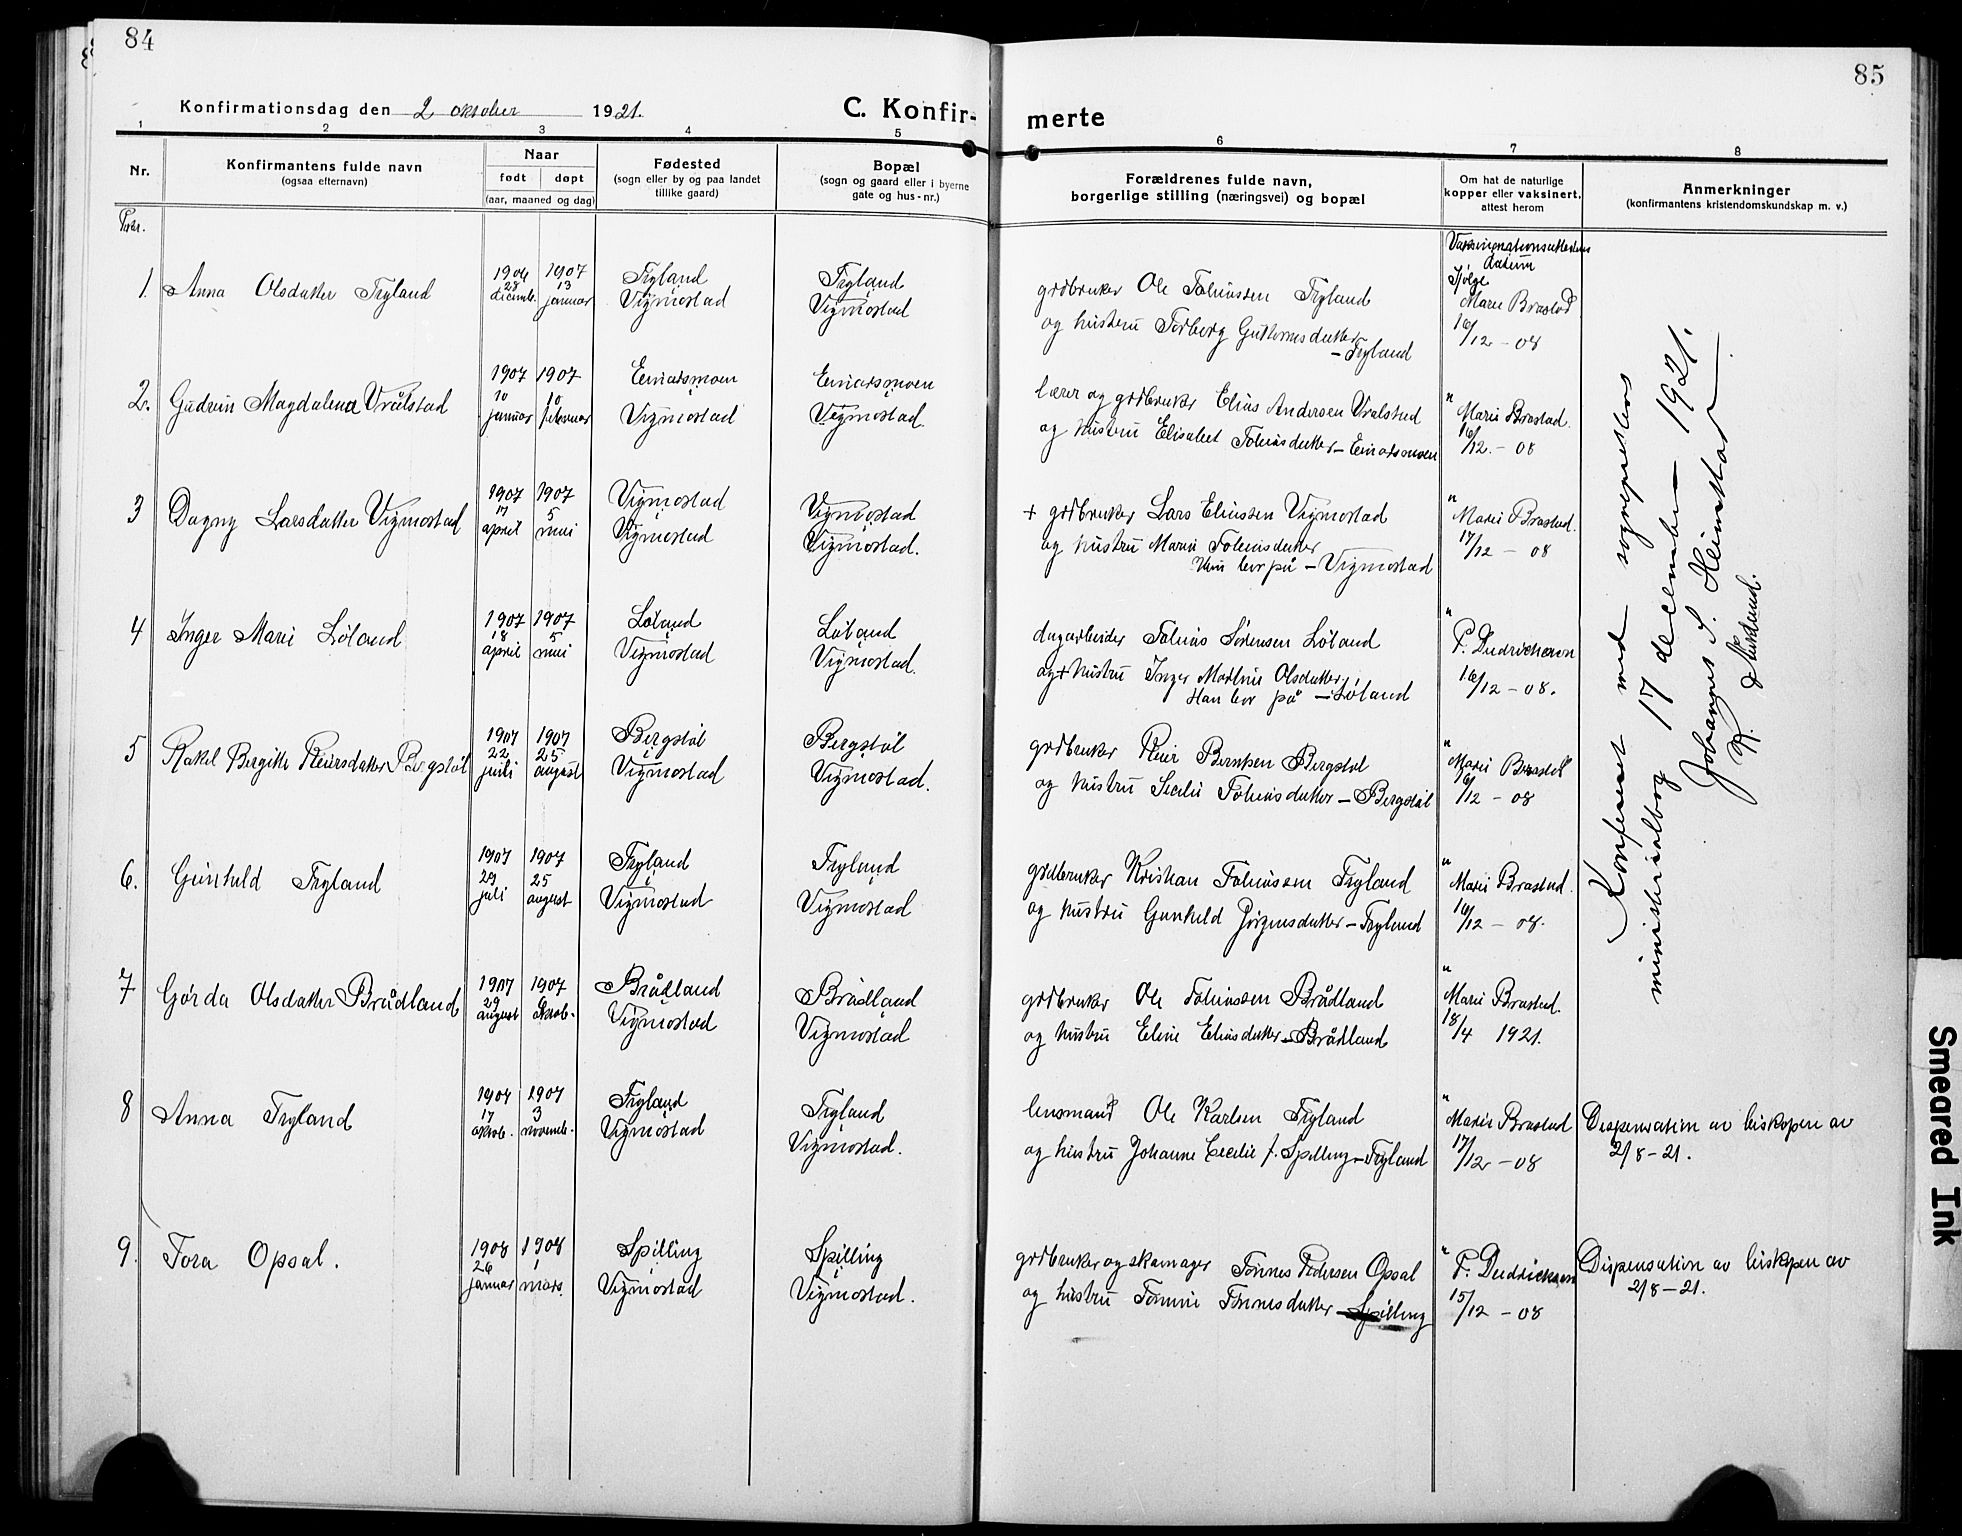 84
Konfirmationsdag den 2 oktober 1921.
C. Konfir-
1 2 3 4 5
Nr.
Konfirmantens fulde navn
(ogsaa efternavn)
Naar
født døpt
(aar, maaned og dag)
Fødested
(sogn eller by og paa landet
tillike gaard)
Bopæl
(sogn og gaard eller i byerne
gate og hus-nr.)
1. Anna Olsdatter Tryland 1906 1907 Tryland Tryland
28 decemb. 13 januar Vigmostad Vigmostad
2. Gudrun Magdalena Vrålstad 1907 1907 Einarsmoen Einarsmoen
10 januar 10 februar Vigmostad Vigmostad.
3 Dagny Larsdatter Vigmostad 1907 1907 Vigmostad Vigmostad
17 april 5 mai Vigmostad Vigmostad.
4 Inger Marie Løland 1907 1907 Løland Løland
18 april 5 mai Vigmostad Vigmostad.
5 Rakel Bergitte Reiersdatter Bergstøl 1907 1907 Bergstøl Bergstøl
22 juli 25 august Vigmostad Vigmostad.
6. Gunhild Tryland 1907 1907 Tryland Tryland
29 juli 25 august Vigmostad Vigmostad
7 Gerda Olsdatter Brådland 1907 1907 Brådland Brådland
29 august 6 oktob. Vigmostad Vigmostad
8 Anna Tryland 1907 1907 Tryland Tryland
17 oktob. 3 novemb. Vigmostad Vigmostad.
9. Tora Opsal. 1908 1908 Spilling Spilling
26 januar 1 mars. Vigmostad Vigmostad.
85
merte
6 7 8
Forældrenes fulde navn,
borgerlige stilling (næringsvei) og bopæl
Om hat de naturlige
kopper eller vaksinert,
attest herom
Anmerkninger
(konfirmantens kristendomskundskap m. v.)
Vaksinationsattestens
datum
grdbruker Ole Tobiassen Tryland
Marie Brastad
og hustru Torborg Guttormsdatter
– Tryland
16/12 – 08
lærer og grdbruker Elias Andersen Vrålstad
" Marie Brastad.
og hustru Elisabet Tobiasdatter – Einarsmoen
16/12. – 08
+ grdbruker Lars Eliassen Vigmostad
" Marie Brastad.
og hustru Maria Tobiasdatter
Hun bor på – Vigmostad
17/12 – 08
dagarbeider Tobias Sørensen Løland
" P. Diedrichsen
og + hustru Inger Martine Olsdatter
Han bor på – Løland
16/12 – 08.
grdbruker Reier Berntsen Bergstøl
" Marie Brastad
og hustru Secilie Tobiasdatter – Bergstøl
16/12 – 08
grdbruker Kristian Tobiassen Tryland
" Marie Brastad.
og hustru Gunhild Jørgensdatter – Tryland
16/12 – 08.
grdbruker Ole Tobiassen Brådland
" Marie Brastad.
og hustru Eline Eliasdatter – Brådland
18/4 1921.
lensmand Ole Karlsen Tryland
" Marie Brastad
Dispensation av biskopen av
og hustru Johanne Cecilie f. Spilling – Tryland
17/12 – 08
2/8 – 21.
grdbruker og skomager Tønnes Pedersen Opsal
" P. Diedrichsen
Dispensation av biskopen av
og hustru Tomine Tønnesdatter – Spilling
15/12 – 08
2/8 – 21.
Konferert med sogneprestens
ministerialbog 17 december 1921.
Johannes S. Heimstad
Smeared Ink